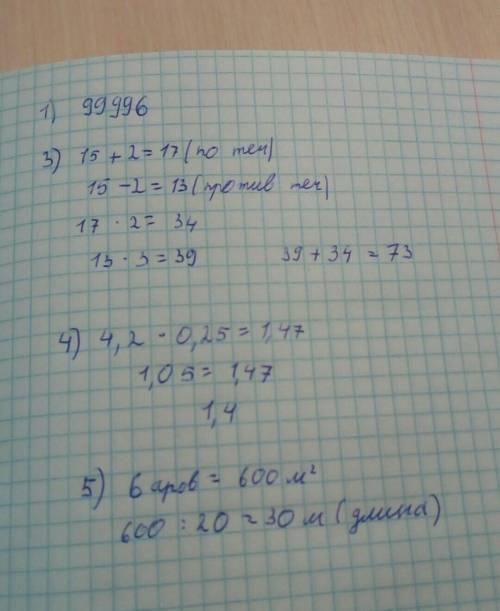 1) 99996
3) 15 + 2 = 17 (по теч)
15 - 2 = 13 (против теч)
17 · 2 = 34
13 · 3 = 39 39 + 34 = 73
4) 4,2 · 0,25 = 1,47
1,05 = 1,47
1,4
5) 6 аров = 600 м²
600 : 20 = 30 м (длина)